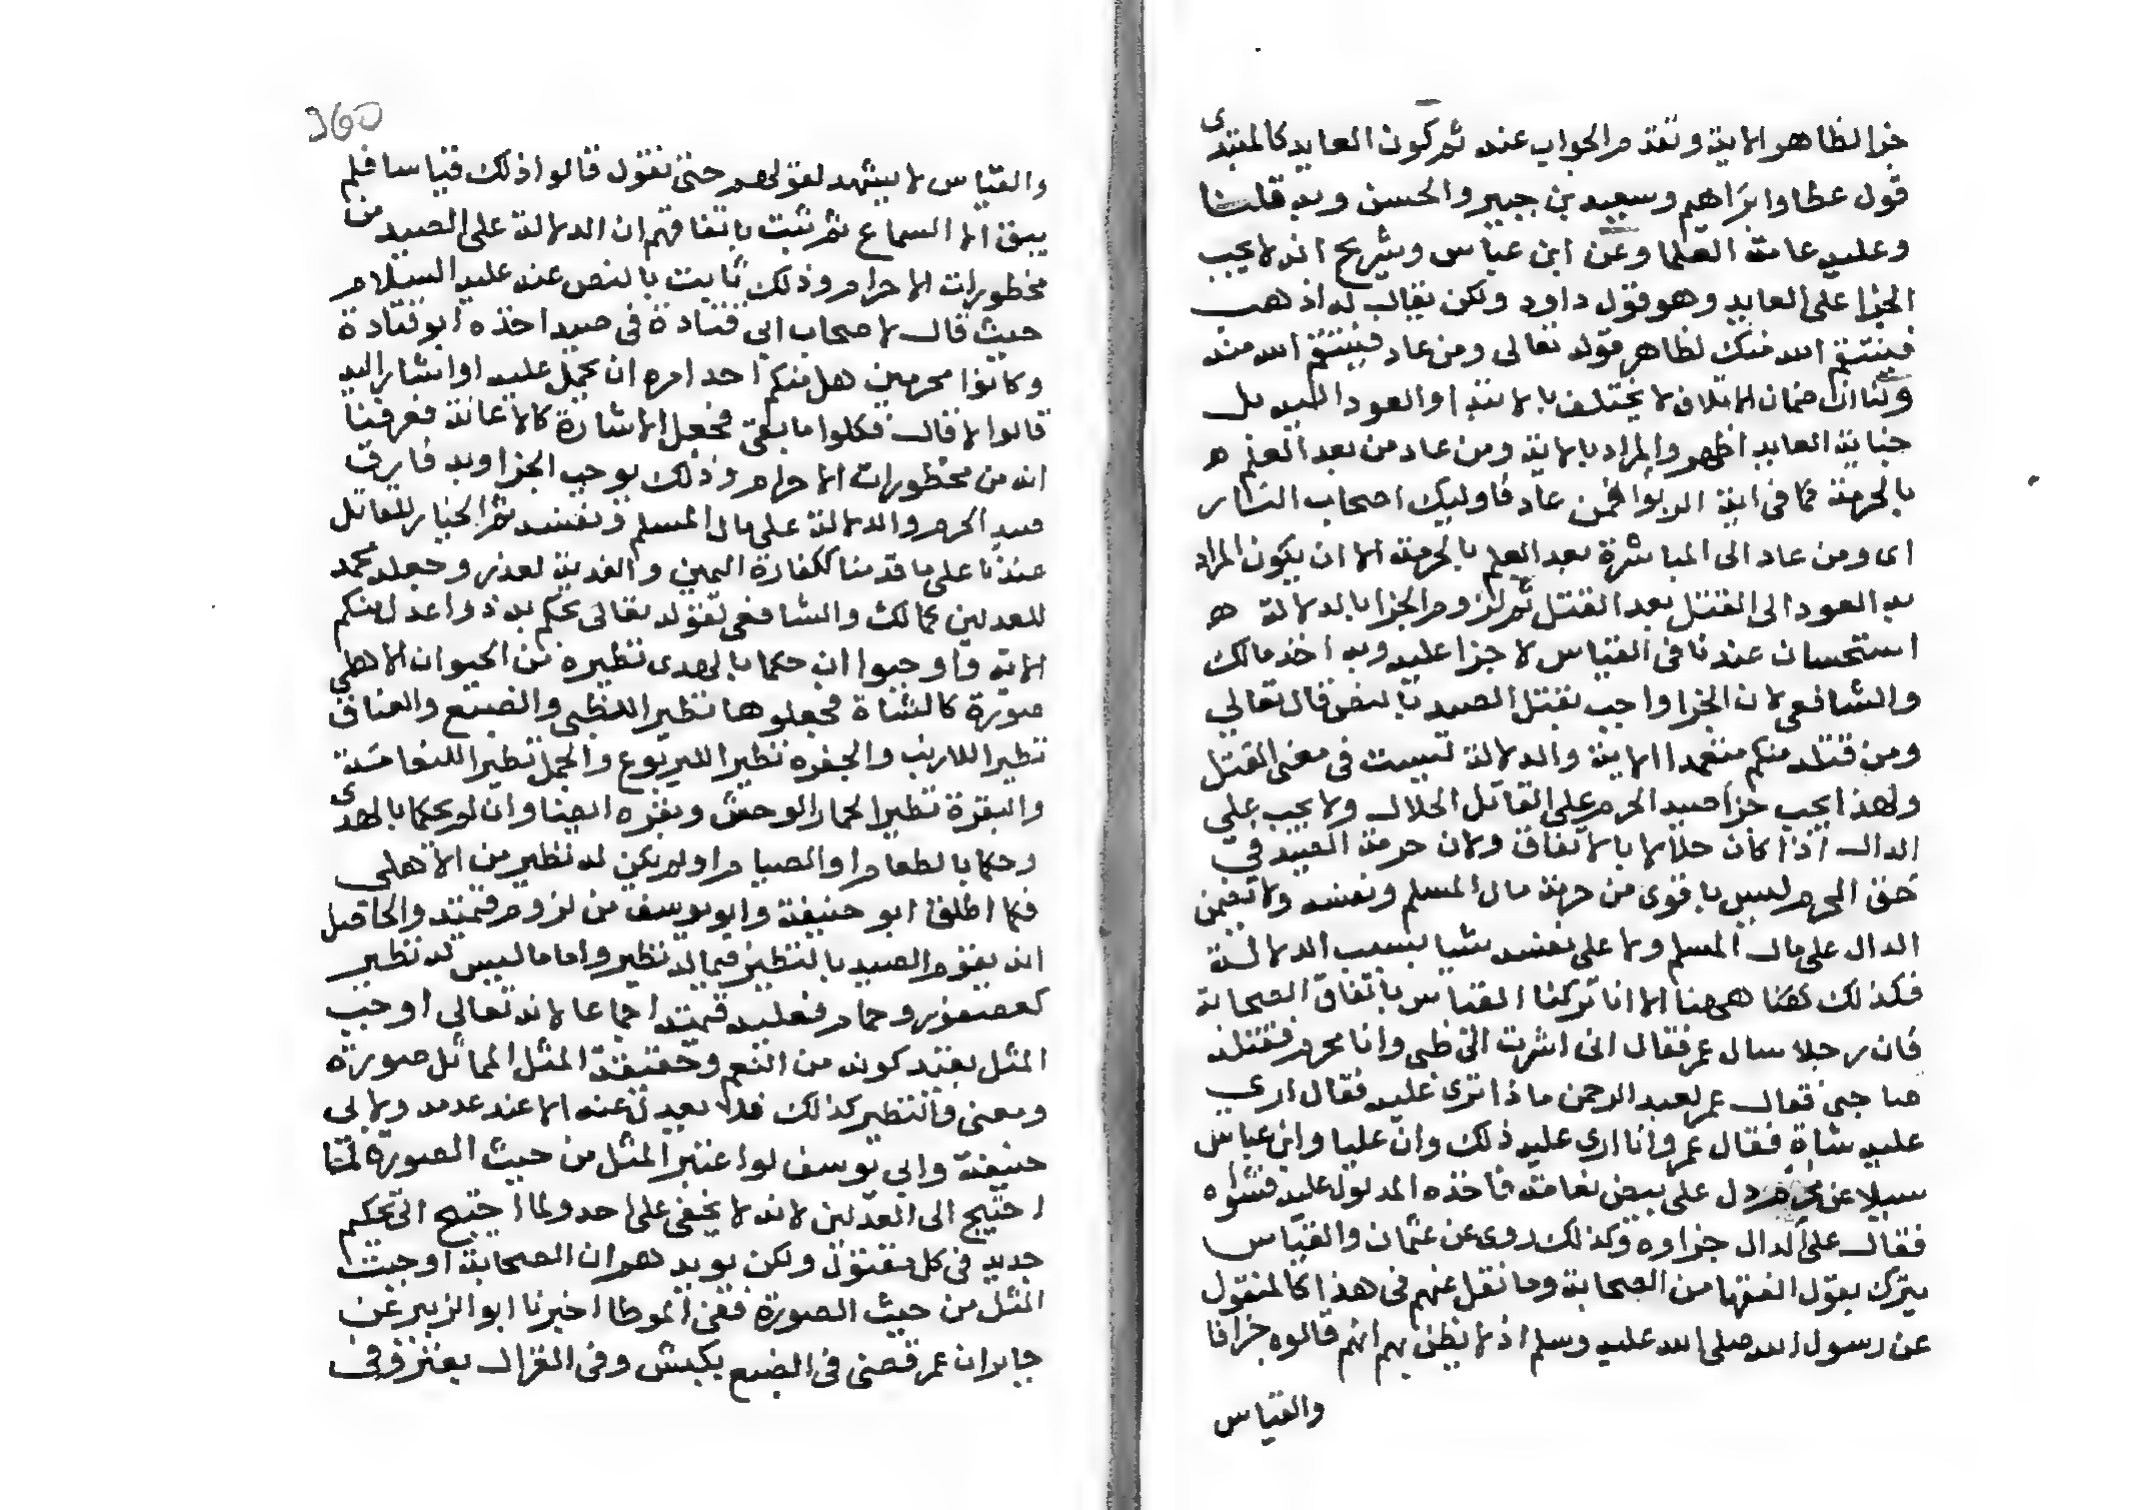 جزا لظاهر الاية وتقدم الجواب عنه ثم كون العايد كالمبتدى
قول عطا وابراهيم وسعيد بن جبير والحسن وبه قلنا
وعليه عامة العلما وعن ابن عباس وشريح انه لا يجب
الجزا على العايد وهو قول داود ولكن يقال له اذهب
فينتقم الله منك لظاهر قوله تعالى ومن عاد فينتقم الله منه
ولنا ان ضمان الاتلاف لا يختلف بالابتدا والعود اليه بل
جناية العايد اظهر والمراد بالاية ومن عاد من بعد العلم
بالحرمة كما في اية الربوا فمن عاد فاوليك اصحاب النار
اى ومن عاد الى المباشرة بعد العلم بالحرمة الا ان يكون المراد
به العود الى القتل بعد القتل ثم لزوم الجزا بالدلالة
استحسان عندنا فى القياس لا جزا عليه وبه اخذ مالك
والشافعى لان الجزا واجب بقتل الصيد بالنص قال تعالي
ومن قتله منكم متعمدا الاية والدلالة ليست في معنى القتل
ولهذا يجب جزا صيد الحرم على القاتل الحلال ولا يجب على
الدال اذا كان حلالا بالاتفاق ولان حرمة الصيد في
حق المحرم ليس باقوى من حرمة مال المسلم ونفسه ولا تضمن
الدال على مال المسلم ولا على نفسه شيا بسبب الدلالة
فكذلك ههنا الا انا تركنا القياس باتفاق الصحابة
فان رجلا سال عمر فقال انى اشرت الى ظبى وانا محرم فقتله
صاحبى فقال عمر لعبد الرحمن ماذا ترى عليه فقال ارى
عليه شاة فقال عمر وانا ارى عليه ذلك وان عليا وابن عباس
سيلا عن محرم دل على بيض نعامة فاخذه المدلول عليه فشواه
فقال على الدال جزاوه وكذلك روى عن عثمان والقياس
يترك بقول الفقها من الصحابة وما نقل عنهم فى هذا كالمنقول
عن رسول الله صلى الله عليه وسلم اذ لا يظن بهم انهم قالوه جزافا
والقياس
360
والقياس لا يشهد لقولهم حتى نقول قالوا ذلك قياسا فلم
يبق الا السماع ثم ثبت باتفاقهم ان الدلالة على الصيد من
محظورات الاحرام وذلك ثابت بالنص عنه عليه السلام
حيث قال لاصحاب ابى قتادة فى صيد اخذه ابو قتادة
وكانوا محرمين هل منكم احد امره ان يحمل عليه او اشار اليه
قالوا لا قال فكلوا ما بقى فجعل الاشارة كالاعانة فعرفنا
انه من محظورات الاحرام وذلك يوجب الجزا وبه فارق
صيد الحرم والدلالة على مال المسلم ونفسه ثم الخيار للقاتل
عندنا على ما قدمنا ككفارة اليمين والفدية لعذر وجعله محمد
للعدلين كمالك والشافعى لقوله تعالى يحكم به ذوا عدل منكم
الاية واوجبوا ان حكما بالهدى نظيره من الحيوان الاهلى
صورة كالشاة فجعلوها نظير الظبى والضبع والعناق
نظيرا للارنب والجفره نظيرا لليربوع والجمل نظيرا للنعامة
والبقرة نظيرا لحمار الوحش وبقره ايضا وان لم يحكما بالهدى
وحكما بالطعام او الصيام او لم يكن له نظير من الاهلى
فكما اطلق ابو حنيفة وابو يوسف من لزوم قيمته والحاصل
انه يقوم الصيد بالنظير فيما له نظير واما ما ليس له نظير
كعصفور وحمام فعليه قيمته اجماعا لانه تعالى اوجب
المثل بقيد كونه من النعم وحقيقة المثل المماثل صورة
ومعنى والنظير كذلك فلا يعدل عنه الا عند عدمه ولابى
حنيفة وابى يوسف لو اعتبر المثل من حيث الصورة لما
احتيج الى العدلين لانه لا يخفى على احد ولما احتيج الى تحكيم
جديد فى كل مقتول ولكن يويدهم ان الصحابة اوجبت
المثل من حيث الصورة ففى الموطا اخبرنا ابو الزبير عن
جابر ان عمر قضى فى الضبع بكبش وفى الغزال بعنز وفى